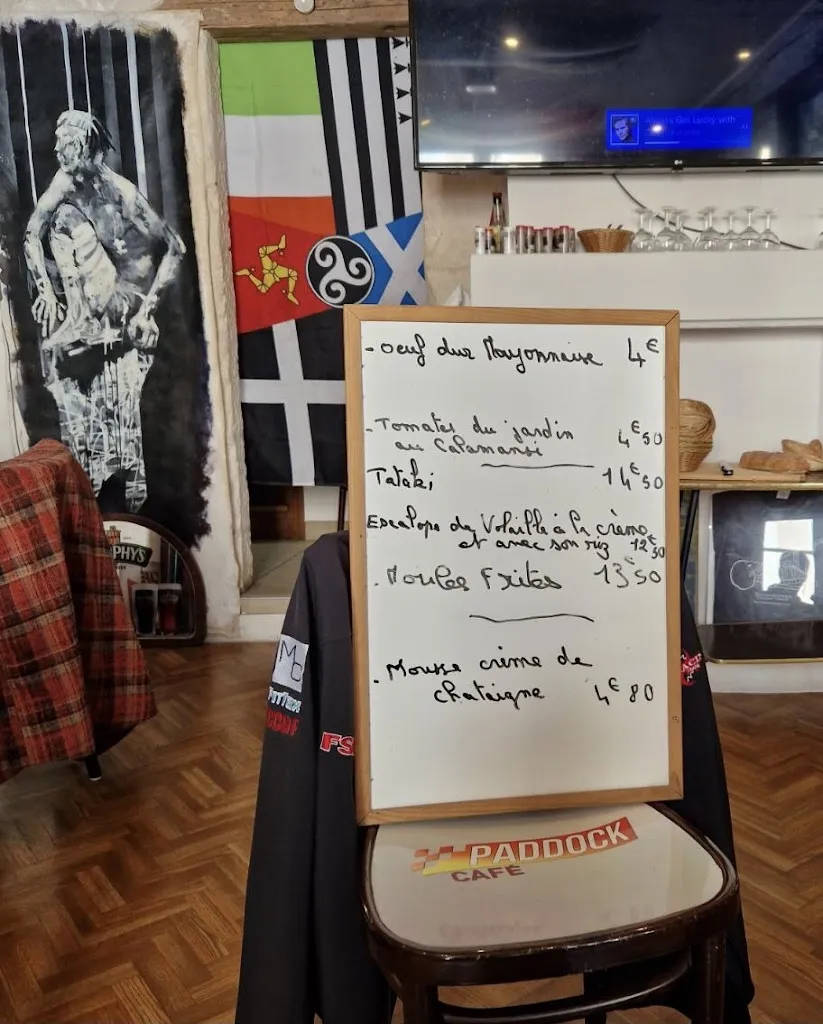 Get Lucky with
LG
- oeuf dur Mayonnaise 4€
- Tomates du jardin
au Calamansi 4€50
Tataki 14€50
Escalope de Volaille à la crème
et avec son riz 12€50
. Moules Frites 13€50
. Mousse crème de
chataigne 4€80
PHY'S
MC
FS
PADDOCK
CAFÉ